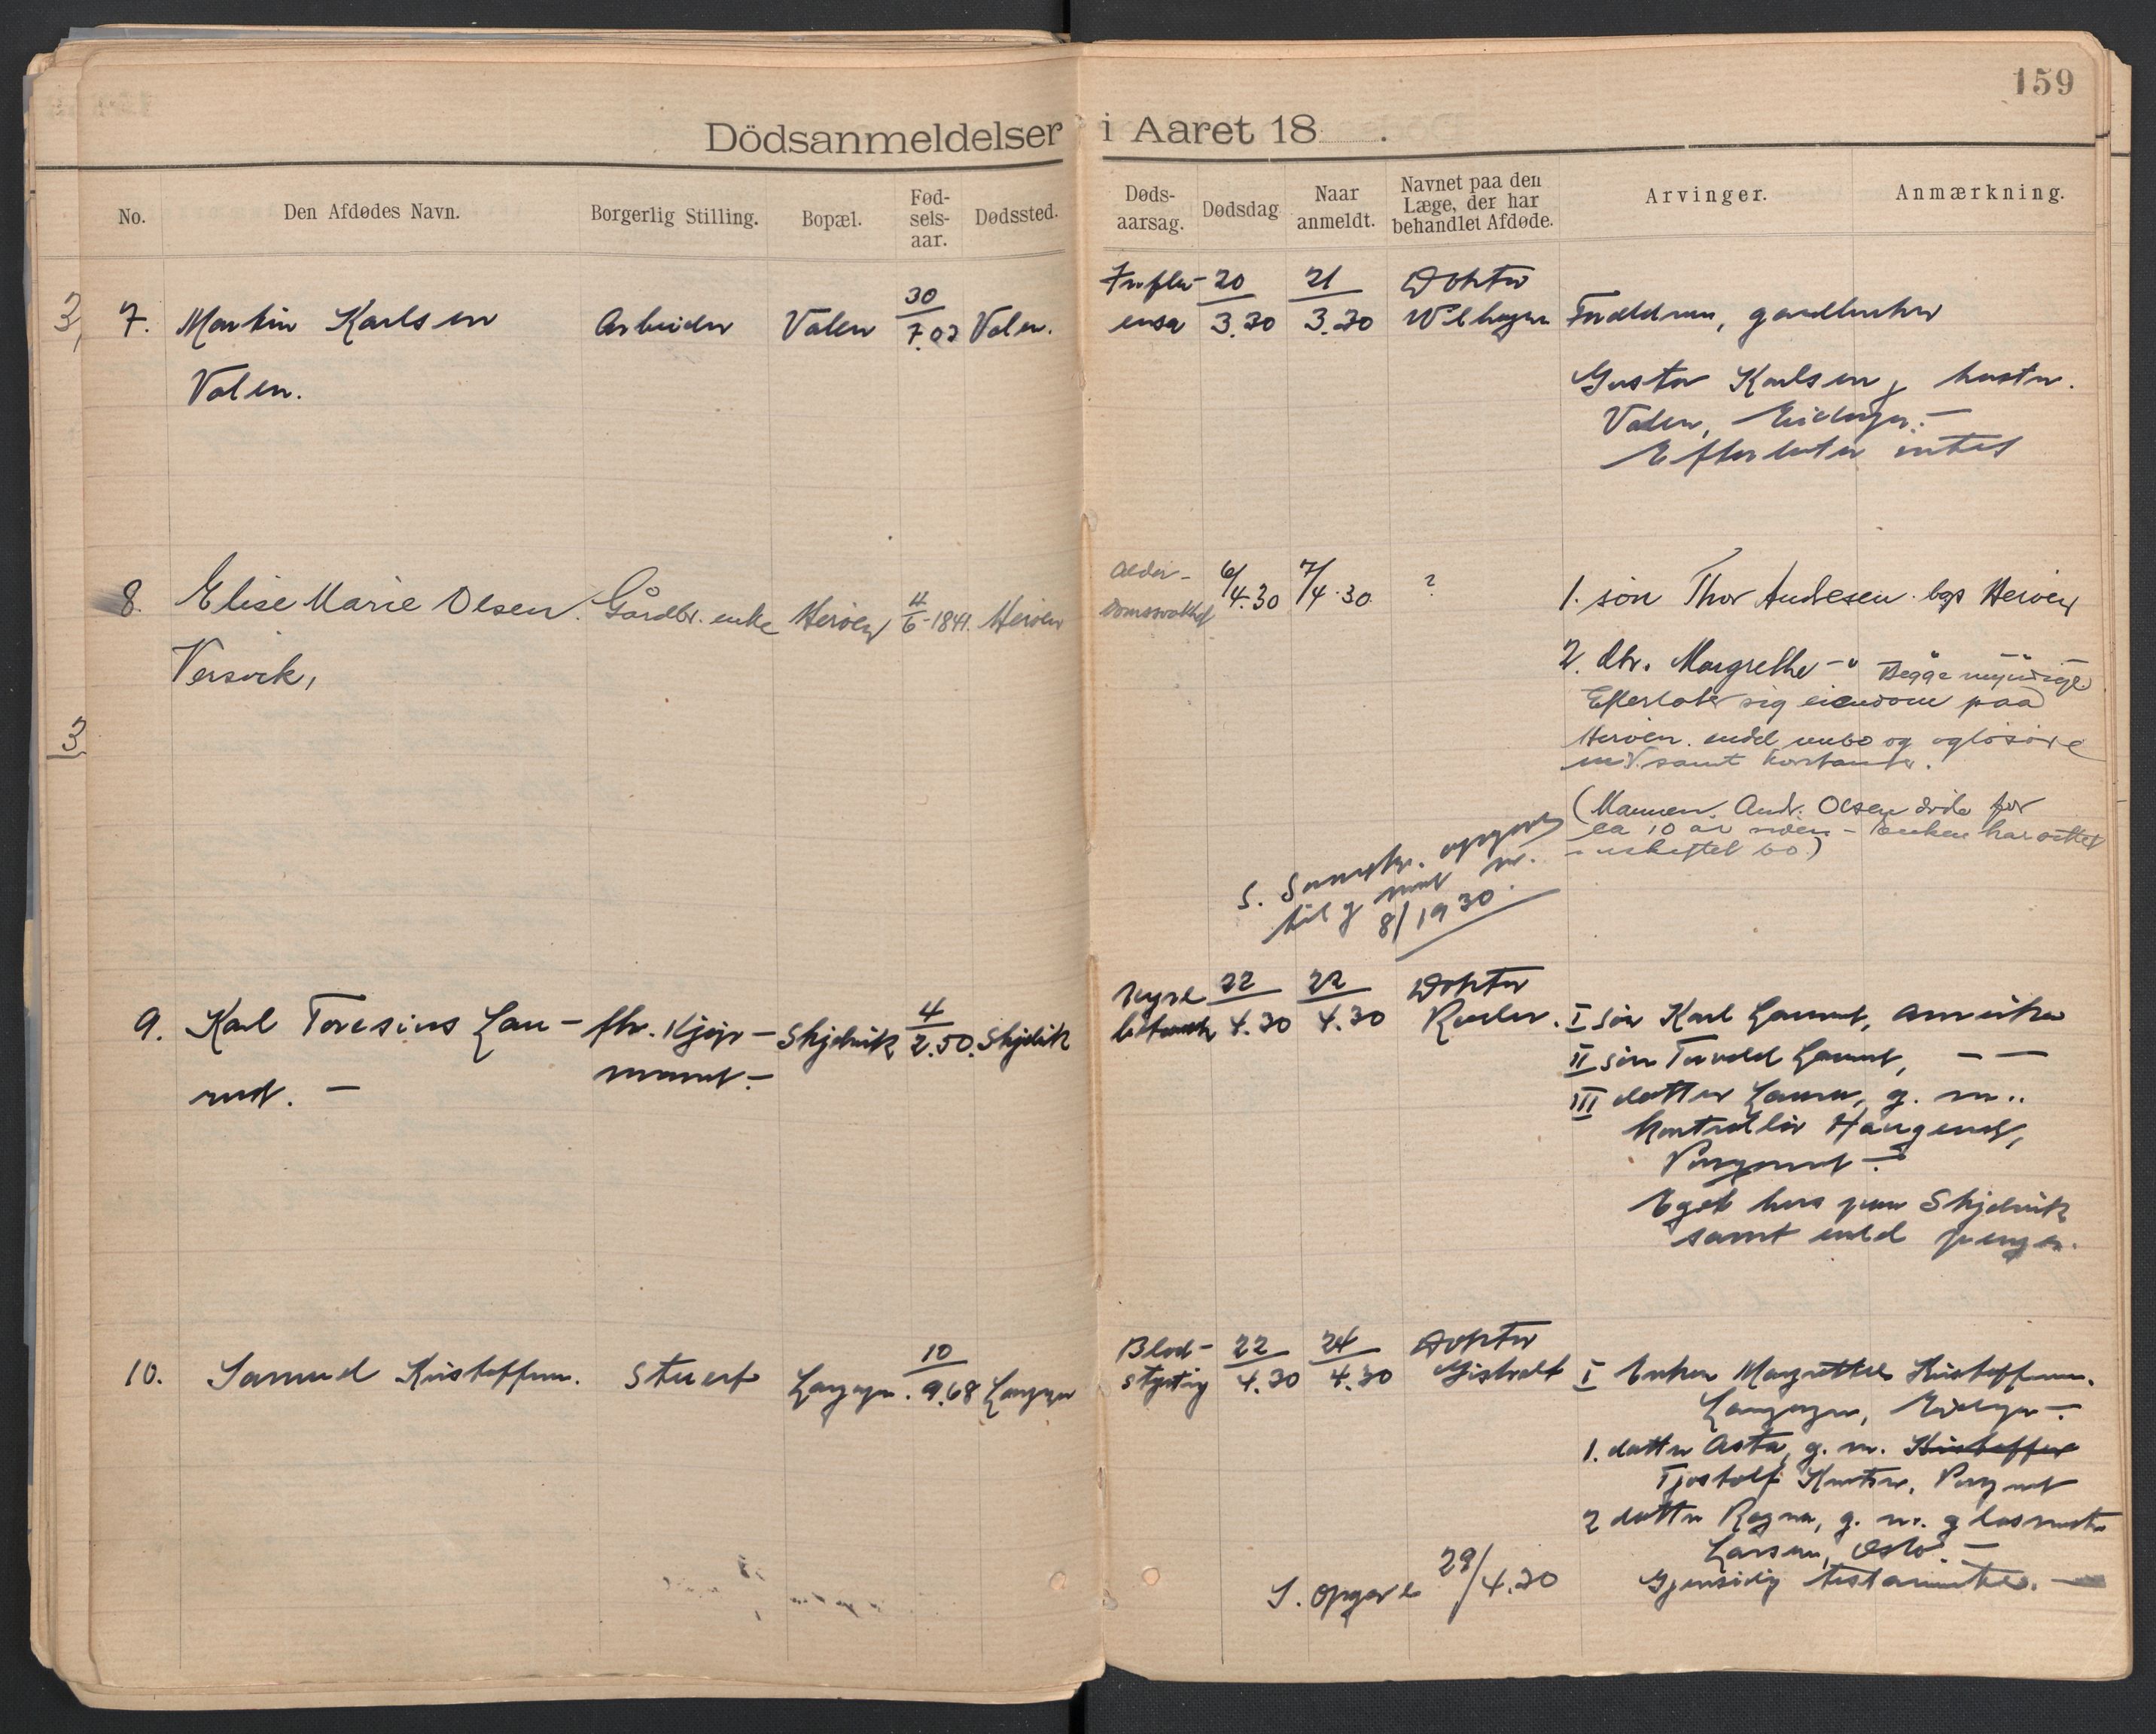 159
Dödsanmeldelser i Aaret 18 .
No.
Den Afdødes Navn.
Borgerlig Stilling.
Bopæl.
Fød-
sels-
aar.
Dødssted.
Døds-
aarsag.
Dødsdag
Naar
anmeldt.
Navnet paa den
Læge, der har
behandlet Afdøde.
Arvinger.
Anmærkning.
3,
7. Martin Karlsen
Valen.
Arbeider
Valen
30
7.02
Valen.
Influ-
ensa
20
3.30
21
3.30
Doktor
Foreldrene, gaardbruker
Gustav Karlsen, hustru.
Valen, Eidanger.-
Efterlater intet
8. Elise Marie Olsen.
Versvik,
Gårdbr. enke
Herøen
4
6-1841.
Herøen
Alder-
domssvakhet
6/4.30
7/4.30
?
1. søn Thor Andresen. bgs Herøen
2. dtr. Margrethe -"- Begge myndige.
Efterlater sig eiendom paa
Herøen. endel innbo og løsøre
samt kontanter.
(Mannen. And. Olsen døde for
ca 10 år siden - Enken har sittet
i uskiftet bo.)
3
S. opgjort
til g
8/1930.
9. Karl Toresius Lau-
rud. -
fhv. Kjøp-
mand.-
Skjelvik
4
2.50.
Skjelvik
Nyre
22
4.30
22
4.30
Doktor
I søn Karl Laurud, Amerika
II søn Torvald Laurud, - -
III datter Laura, g. m..
kontrollør Haugerud,
Porsgrund -.
Eget hus paa Skjelvik
samt endel penger.
10. Samuel Kristoffersen.
Stuert
Langangen.
10
9.68
Langangen
Blod-
styrtning
22
4.30
24
4.30
Doktor
I Enken Margrethe Kristoffersen.
Langangen, Eidanger -.
1. datter Asta, g. m. Kristoffer
Tjostolf Knutsen, Porsgrund
2 datter Ragna, g. m. glasmester
Larsen, Oslo. -
Gjensidig testamente. -
S. opgave 29/4.30